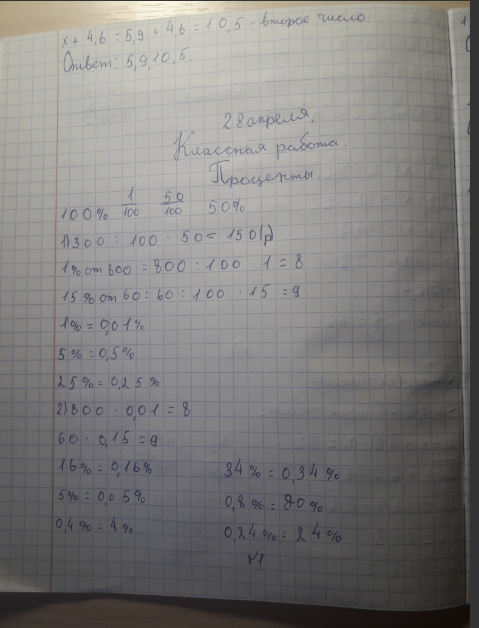 x + 4,6 = 5,9 + 4,6 = 10,5 - второе число.
Ответ: 5,9, 10,5.
28 апреля.
Классная работа.
Проценты.
100% 1/100 50/100 50%
1) 300 : 100 · 50 = 150(р)
1% от 800 = 800 : 100 · 1 = 8
15% от 60 = 60 : 100 · 15 = 9
1% = 0,01%
5% = 0,5%
25% = 0,25%
2) 800 · 0,01 = 8
60 · 0,15 = 9
16% = 0,16% 34% = 0,34%
5% = 0,05% 0,8% = 80%
0,4% = 4% 0,24% = 24%
№1